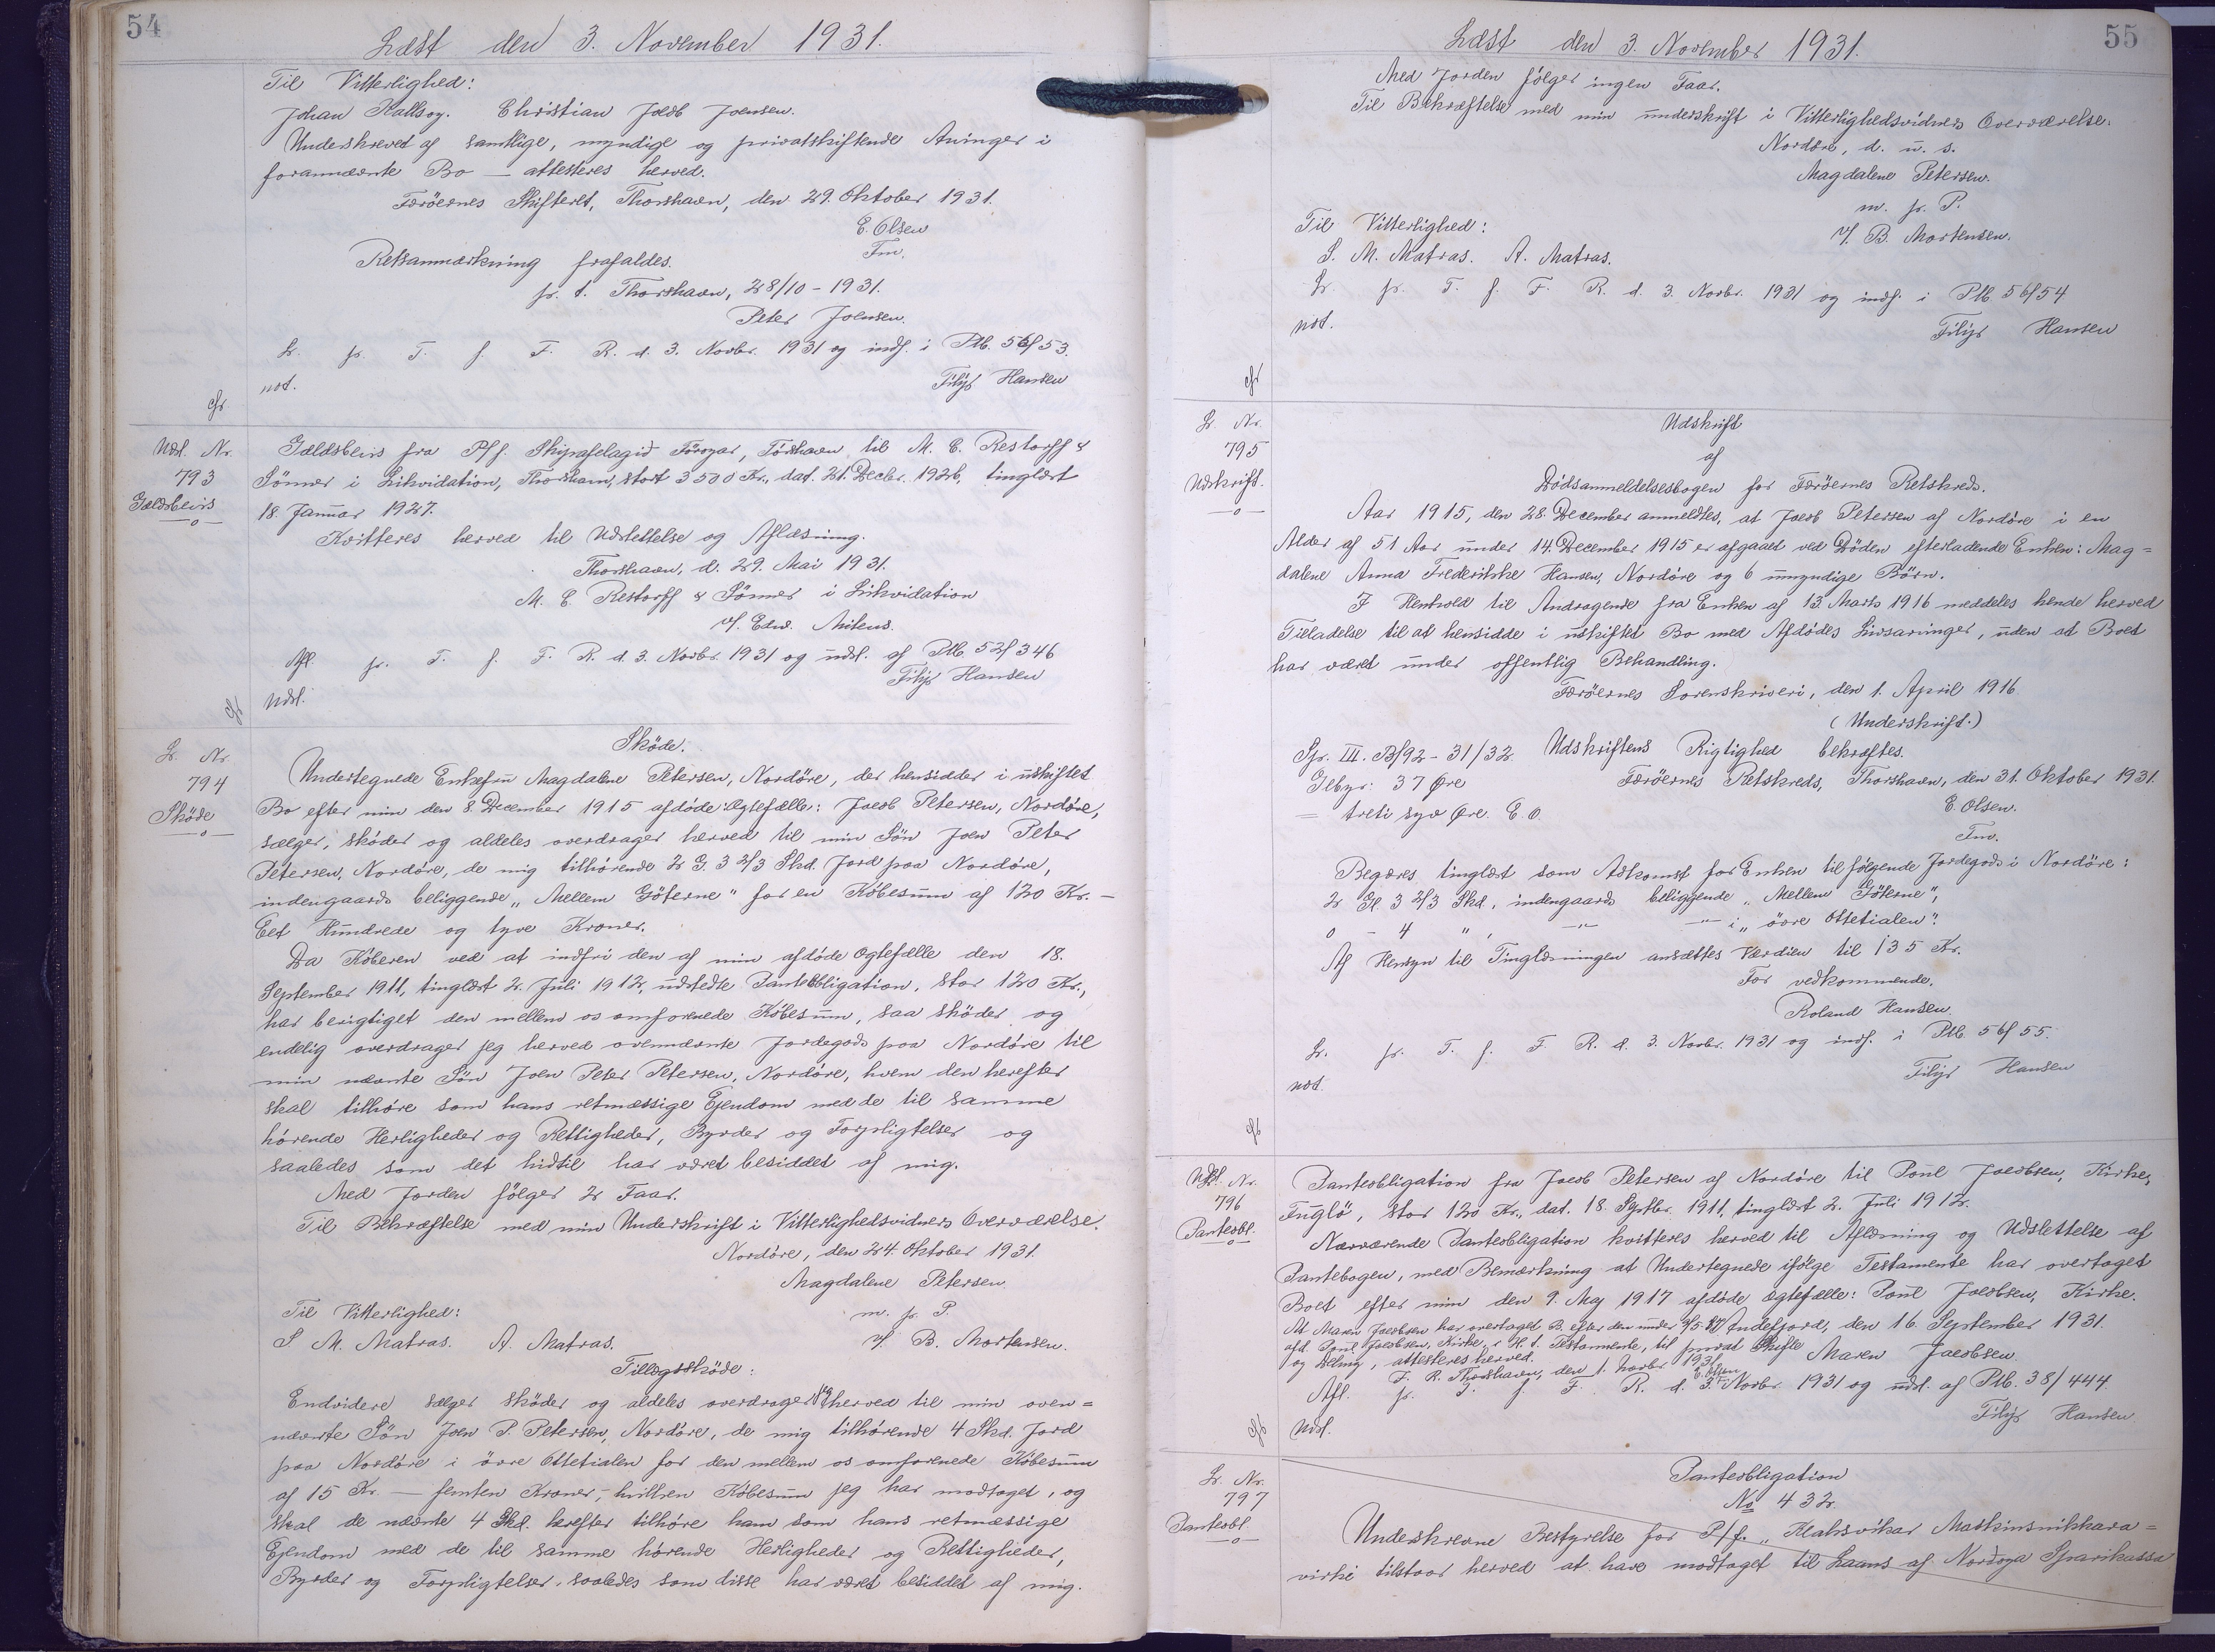 54
Læst den 3. November 1931.
Til Vitterlighed:
Johan Kallsoy. Christian Jacob Joensen.
Underskrevet af samtlige, myndige og privatskiftende Arvinger i
forannævnte Bo — attesteres herved.
Færöernes Skifteret, Thorshavn, den 29. Oktober 1931.
E. Olsen
Fm.
Retsanmærkning frafaldes.
pr. t. Thorshavn, 28/10 - 1931.
Peter Joensen.
Lr. pr. T. f. F. R. d. 3. Novbr. 1931 og indf. i Ptb. 56/53.
not.
Filip Hansen
cfr.
Udsl. Nr.
793
Gældsbevis
Gældsbevis fra P/f. Skipafelagið Föroyar, Tórshavn til M. C. Restorff &
Sönner i Likvidation, Thorshavn, stort 3500 Kr., dat. 21. Decbr. 1926, tinglæst
18. Januar 1927.
Kvitteres herved til Udslettelse og Aflæsning.
Thorshavn, d. 29. Mai 1931.
M. C. Restorff & Sönner i Likvidation
v/. Edw. Mitens.
Afl. pr. T. f. F. R. d. 3. Novbr. 1931 og udsl. af Ptb. 52/346
Filip Hansen
Udsl.
cfr
Lr. Nr.
794
Sköde
Sköde.
Undertegnede Enkefru Magdalene Petersen, Nordöre, der hensidder i uskiftet
Bo efter min den 8. December 1915 afdöde Ægtefælle: Jacob Petersen, Nordöre,
sælger, sköder og aldeles overdrager herved til min Sön Joen Peter
Petersen, Nordöre, de mig tilhörende 2 G. 3 2/3 Skd. Jord paa Nordöre,
indengaards beliggende „Mellem Göterne" for en Köbesum af 120 Kr. —
Eet Hundrede og tyve Kroner.
Da Köberen ved at indfri den af min afdöde Ægtefælle den 18.
September 1911, tinglæst 2. Juli 1912, udstedte Panteobligation, stor 120 Kr.,
har berigtiget den mellem os omforenede Köbesum, saa sköder og
endelig overdrager jeg herved ovennævnte Jordegods paa Nordöre til
min nævnte Sön Joen Peter Petersen, Nordöre, hvem den herefter
skal tilhöre som hans retmæssige Ejendom med de til samme
hörende Herligheder og Rettigheder, Byrder og Forpligtelser og
saaledes som det hidtil har været besiddet af mig.
Med Jorden fölger 2 Faar.
Til Bekræftelse med min Underskrift i Vitterlighedsvidners Overværelse.
Nordöre, den 24. Oktober 1931.
Magdalene Petersen
m. p. P.
v/. B. Mortensen.
Til Vitterlighed:
S. M. Matras. A. Matras.
Tillægssköde:
Endvidere sælger sköder og aldeles overdrager jeg herved til min oven=
nævnte Sön Joen P. Petersen, Nordöre, de mig tilhörende 4 Skd. Jord
paa Nordöre i övre Ottetialen for den mellem os omforenede Köbesum
af 15 Kr. — femten Kroner, — hvilken Köbesum jeg har modtaget, og
skal de nævnte 4 Skd. herefter tilhöre ham som hans retmæssige
Ejendom med de til samme hörende Herligheder og Rettigheder,
Byrder og Forpligtelser, saaledes som disse har været besiddet af mig.
55
Læst den 3. November 1931.
Med Jorden fölger ingen Faar.
Til Bekræftelse med min underskrift i Vitterlighedsvidners Overværelse.
Nordöre, d. u. s.
Magdalene Petersen.
m. p. P.
v/. B. Mortensen.
Til Vitterlighed:
S. M. Matras. A. Matras.
Lr. pr. T. f. F. R. d. 3. Novbr. 1931 og indf. i Ptb. 56/54
not.
Filip Hansen
cfr
Lr. Nr.
795
Udskrift.
Udskrift
af
Dödsanmeldelsesbogen for Færöernes Retskreds.
Aar 1915, den 28. December anmeldtes, at Jacob Petersen af Nordöre i en
Alder af 51 Aar under 14. December 1915 er afgaaet ved Döden efterladende Enken: Mag=
dalene Anna Frederikke Hansen, Nordöre og 6 umyndige Börn.
I Henhold til Andragende fra Enken af 13. Marts 1916 meddeles hende herved
Tilladelse til at hensidde i uskiftet Bo med Afdödes Livsarvinger, uden at Boet
har været under offentlig Behandling.
Færöernes Sorenskriveri, den 1. April 1916
(Underskrift.)
Spr. III. B/92 - 31/32. Udskriftens Rigtighed bekræftes.
Gebyr: 37 Øre Færöernes Retskreds, Thorshavn, den 31. Oktober 1931.
= treti syv Øre. E. O.
E. Olsen.
Fm.
Begæres tinglæst som Adkomst for Enken til fölgende Jordegods i Nordöre:
2 G. 3 2/3 Skd., indengaards beliggende „Mellem Göterne",
0 - 4 ", —"— —"— i „övre Ottetialen".
Af Hensyn til Tinglæsningen ansættes Værdien til 135 Kr.
For vedkommende.
Roland Hansen.
Lr. pr. T. f. F. R. d. 3. Novbr. 1931 og indf. i Ptb. 56/55.
not.
Filip Hansen
cfr
Udsl. Nr.
796
Panteobl.
Panteobligation fra Jacob Petersen af Nordöre til Poul Jacobsen, Kirke,
Fuglö, stor 120 Kr., dat. 18. Septbr. 1911, tinglæst 2. Juli 1912.
Nærværende Panteobligation kvitteres herved til Aflæsning og Udslettelse af
Pantebogen, med Bemærkning at Undertegnede ifölge Testamente har overtaget
Boet efter min den 9. Maj 1917 afdöde Ægtefælle: Poul Jacobsen, Kirke.
Endefjord, den 16. September 1931.
Maren Jacobsen.
At Maren Jacobsen har overtaget B. efter den under 9/5-17
afd. Poul Jacobsen, Kirke, i H. t. Testamente, til privat Skifte
og Deling, attesteres herved.
F. R. Thorshavn, den 1. Novbr. 1931
E. Olsen
Afl. pr. T. f. F. R. d. 3. Novbr. 1931 og udsl. af Ptb. 38/444.
Udsl.
Filip Hansen
cfr
Lr. Nr.
797
Panteobl.
Panteobligation
No 432.
Underskrevne Bestyrelse for P/f. „Klaksvíkar Maskinsnikkara=
virki tilstaar herved at have modtaget til Laans af Norðoya Sparikassa